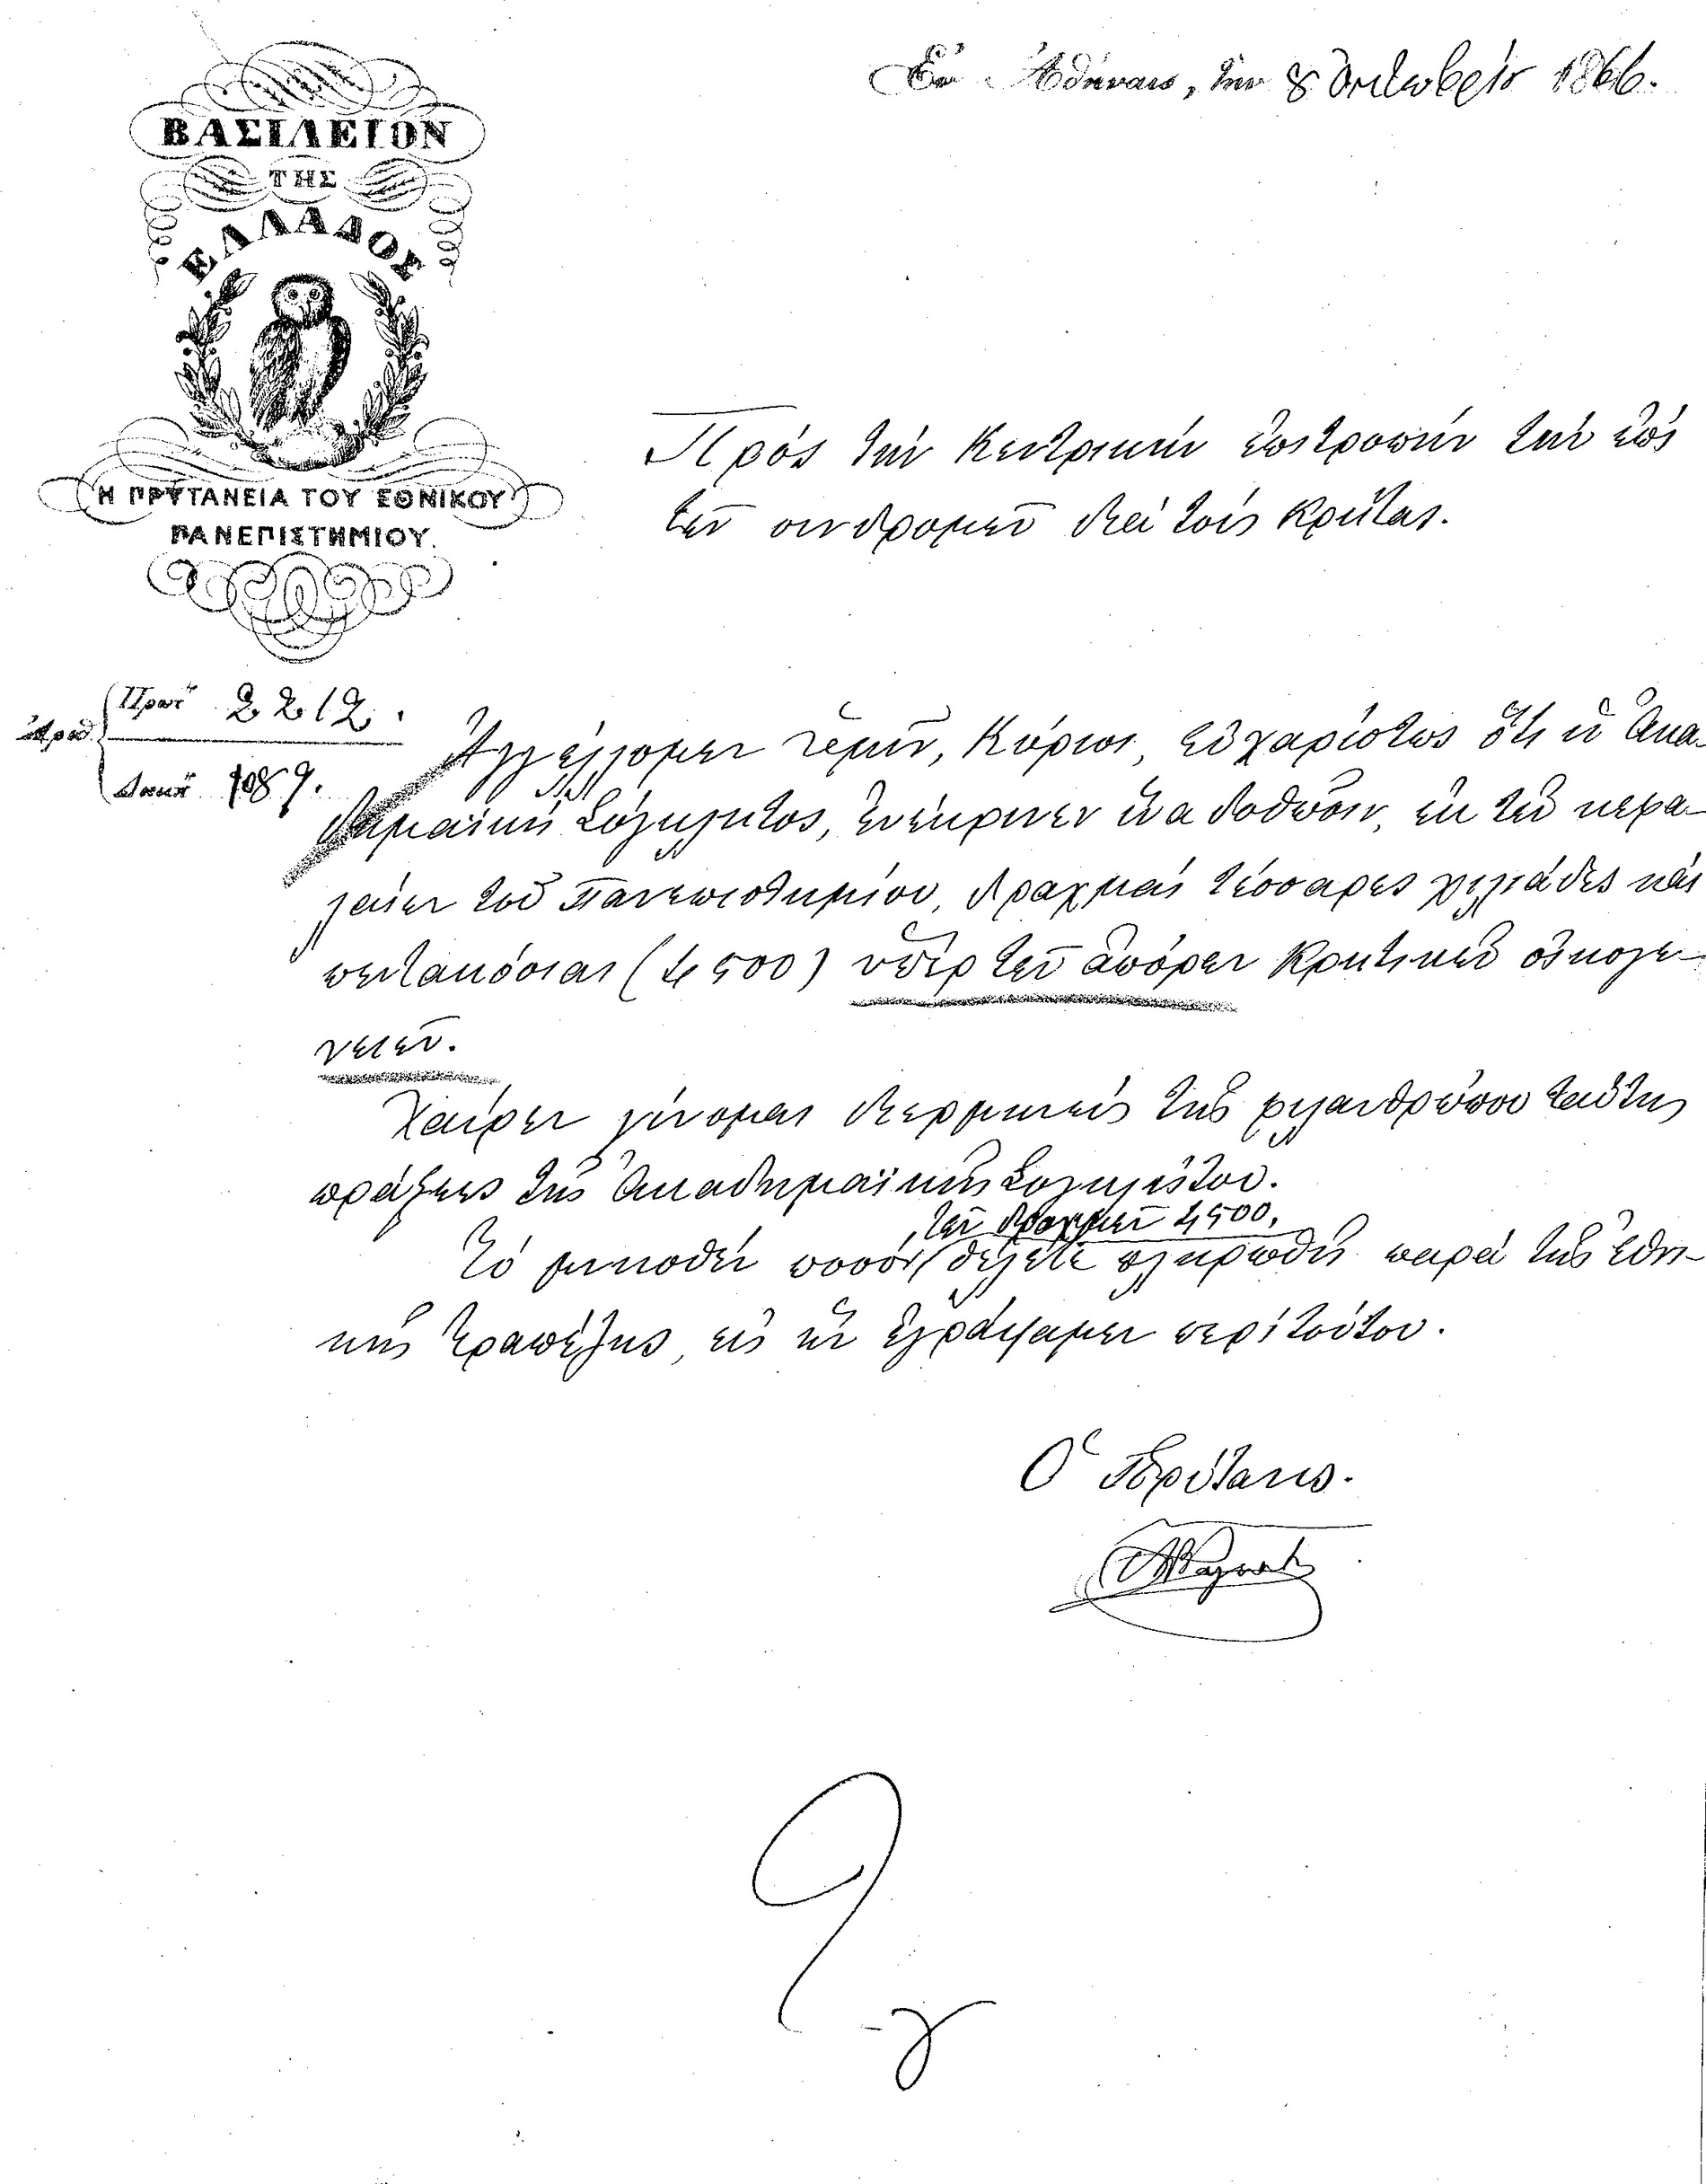 Ἐν Ἀθήναις, τὴν 8 Ὀκτωβρίου 1866.
ΒΑΣΙΛΕΙΟΝ
ΤΗΣ
ΕΛΛΑΔΟΣ
Η ΠΡΥΤΑΝΕΙΑ ΤΟΥ ΕΘΝΙΚΟΥ
ΠΑΝΕΠΙΣΤΗΜΙΟΥ.
Πρὸς τὴν Κεντρικὴν ἐπιτροπὴν τὴν ἐπὶ
τῶν συνδρομῶν διὰ τοὺς Κρῆτας.
Ἀριθ.
Πρωτ 2212.
Διεκπ 1089.
Ἀγγέλλομεν ὑμῖν, Κύριοι, εὐχαρίστως ὅτι ἡ Ἀκα-
δημαϊκὴ Σύγκλητος, ἐνέκρινεν ἵνα δοθῶσιν, ἐκ τῶν κεφα-
λαίων τοῦ Πανεπιστημίου, δραχμαὶ τέσσαρες χιλιάδες καὶ
πεντακόσιαι (4500) ὑπὲρ τῶν ἀπόρων Κρητικῶν οἰκογε-
νειῶν.
Χαίρων γίνομαι διερμηνεὺς τῆς φιλανθρώπου ταύτης
πράξεως τῆς Ἀκαδημαϊκῆς Συγκλήτου.
τῶν δραχμῶν 4500,
Τὸ ποσὸν θέλετε πληρωθῆ παρὰ τῆς Ἐθνι-
κῆς Τραπέζης, εἰς ἣν ἐγράψαμεν περὶ τούτου.
Ὁ Πρύτανις.